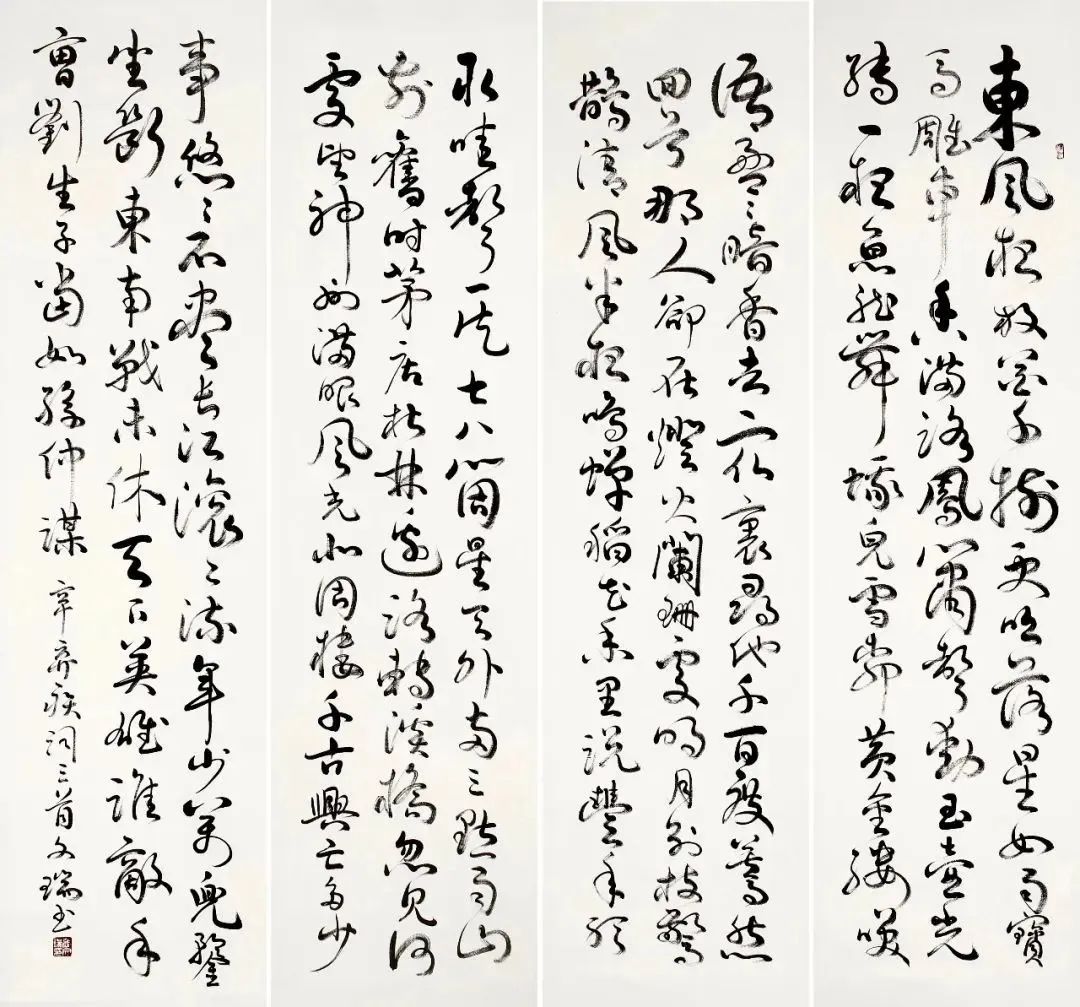 東風夜放花千樹更吹落星如雨寶
馬雕車香滿路鳳簫聲動玉壺光
轉一夜魚龍舞蛾兒雪柳黃金縷笑
語盈〻暗香去眾裏尋他千百度驀然
回首那人卻在燈火闌珊處明月別枝驚
鵲清風半夜鳴蟬稻花香里說豐年聽
取蛙聲一片七八個星天外兩三點雨山
前舊時茅店社林邊路轉溪橋忽見何
處望神州滿眼風光北固樓千古興亡多少
事悠〻不盡長江滾〻流年少萬兜鍪
坐斷東南戰未休天下英雄誰敵手
曹劉生子當如孫仲謀 辛棄疾詞三首文瑞書